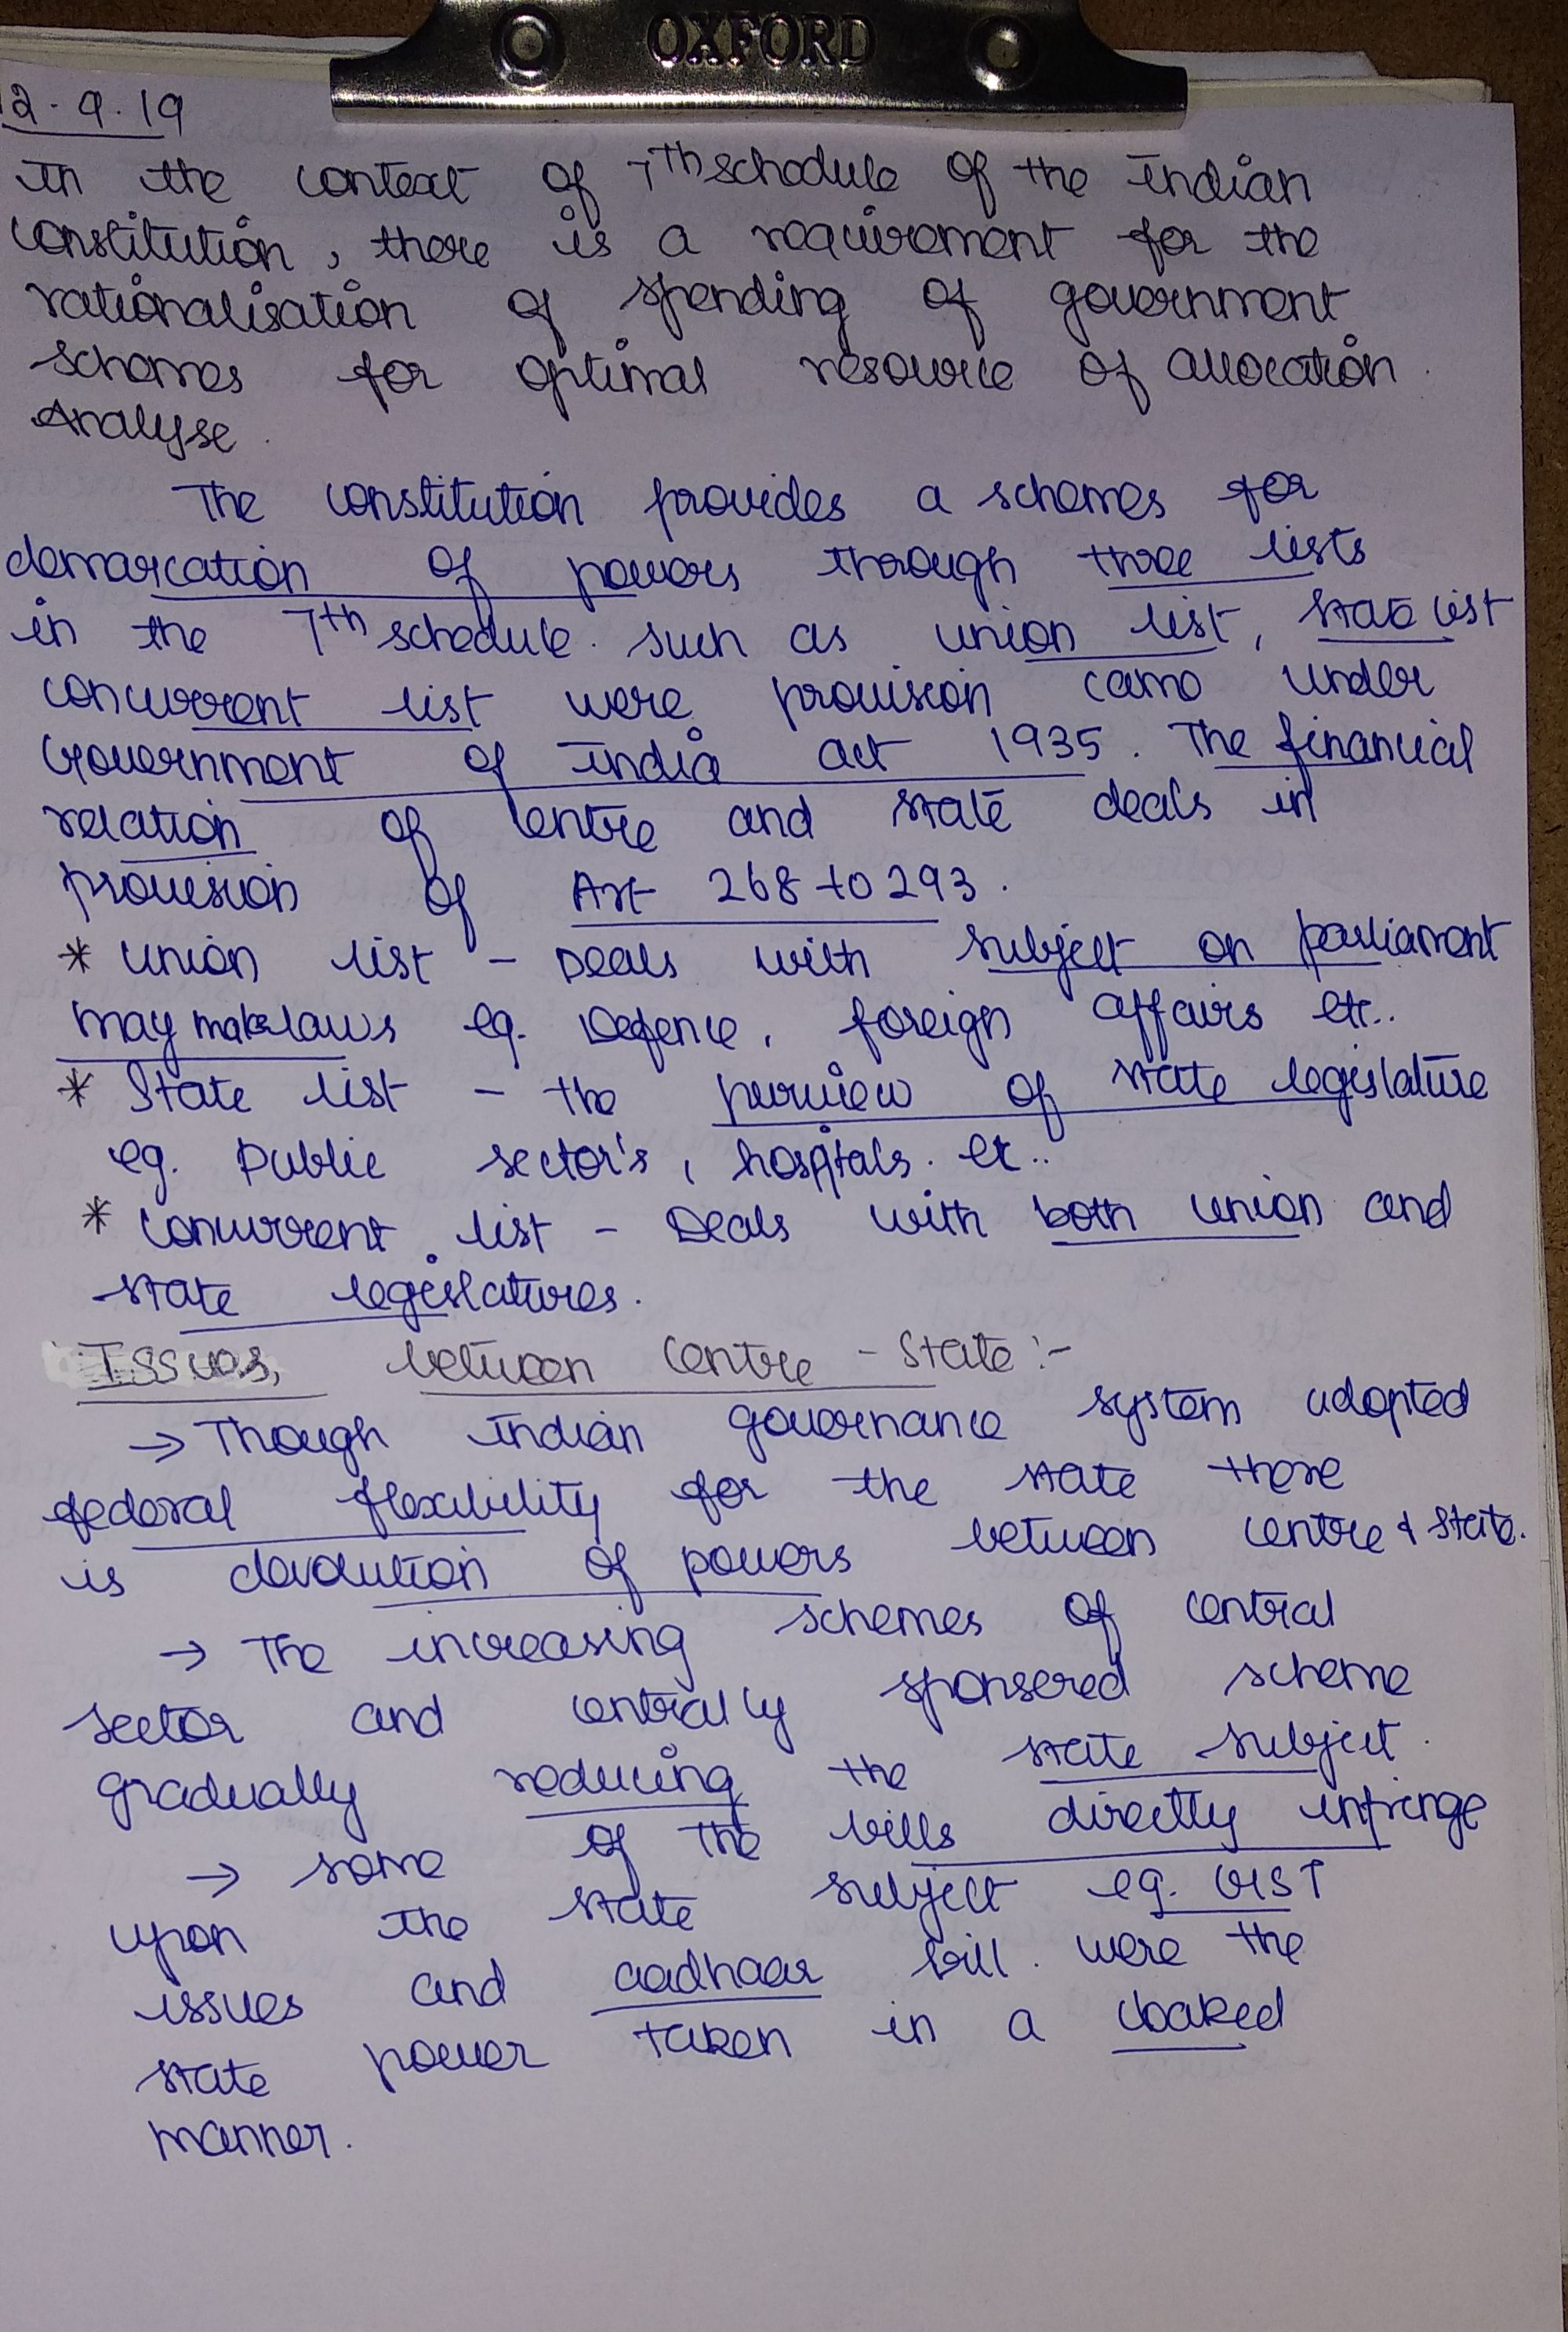 OXFORD
12.9.19
In the context of 7th schedule of the Indian
constitution, there is a requirement for the
rationalisation of spending of government
schemes for optimal resource of allocation.
Analyse.
The constitution provides a schemes for
demarcation of powers through three lists
in the 7th schedule. such as union list, state list
concurrent list were provision came under
Government of India act 1935. The financial
relation of centre and state deals in
provision of Art 268 to 293.
* Union list - Deals with subject on parliament
may make laws eg. Defence, foreign affairs etc..
* State list - the purview of state legislature
eg. Public sector's, hospitals. etc..
* Concurrent list - Deals with both union and
state legislatures.
Issues, between Centre - State :-
→ Though Indian governance system adopted
federal flexibility for the state there
is devolution of powers between centre & state.
→ The increasing schemes of central
sector and centrally sponsered scheme
gradually reducing the state subject.
→ some of the bills directly infringe
upon the state subject eg. GST
issues and aadhaar bill. were the
state power taken in a cloaked
manner.